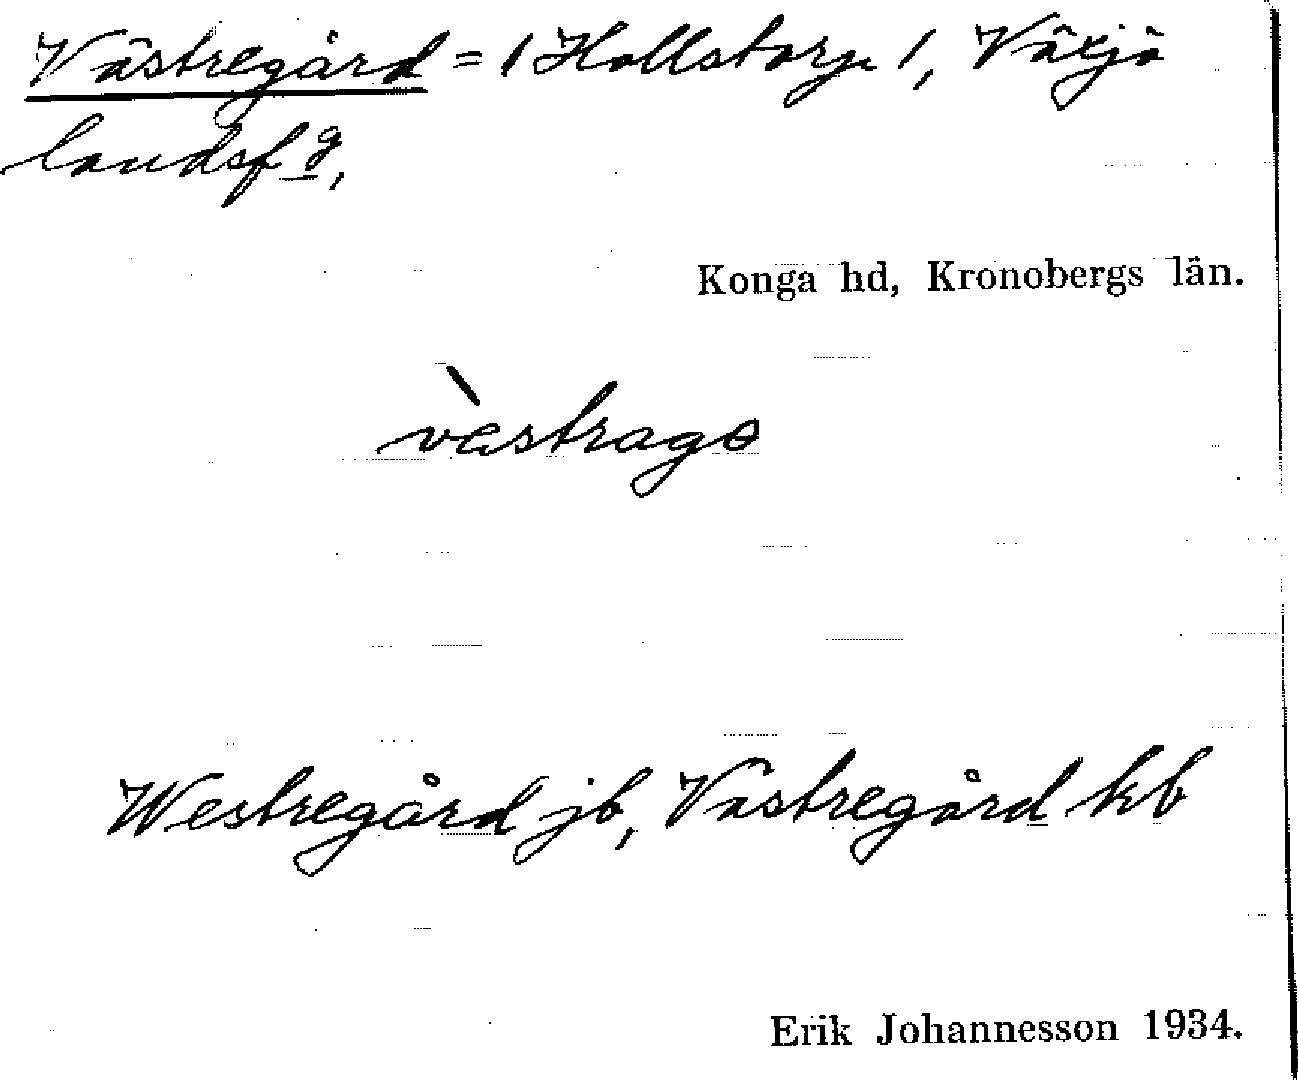 Västregård = (Hollstorp 1, Växjö
landsfg,
Konga hd, Kronobergs län.
vàstragɵ
Westregård jb, Västregård kb
Erik Johannesson 1934.